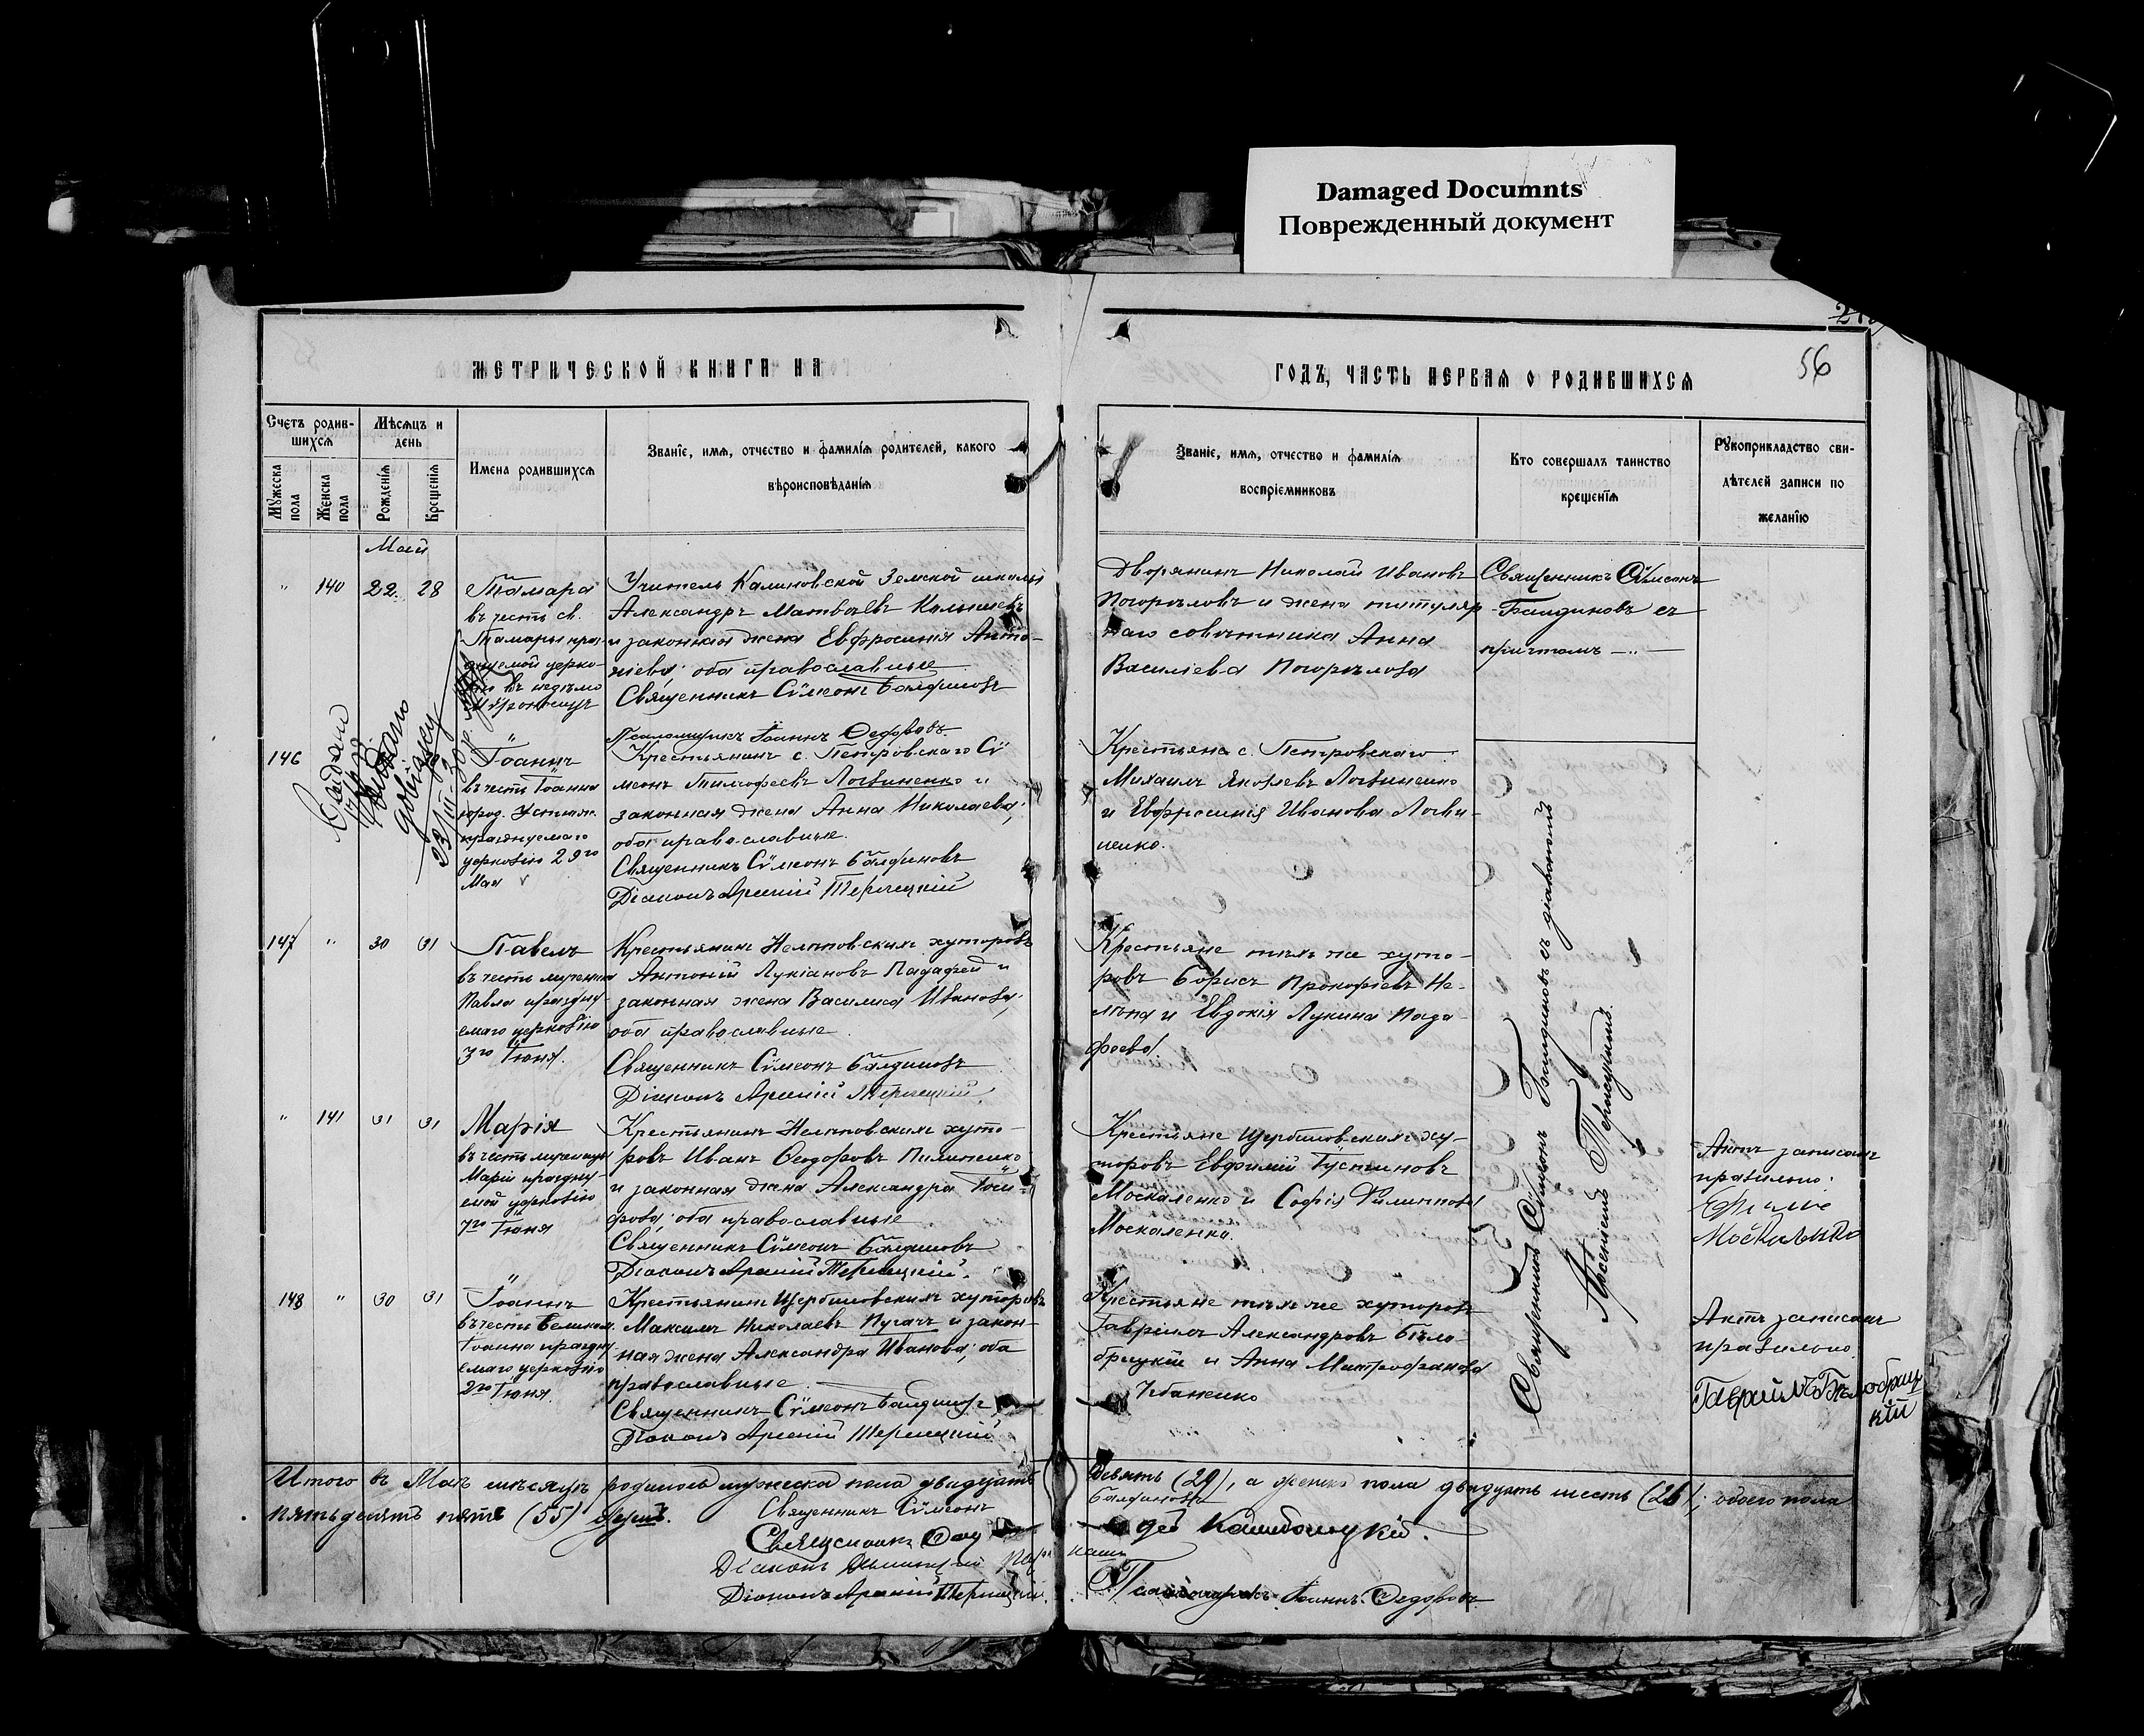 Damaged Documnts
Поврежденный документ
56
МЕТРИЧЕСКОЙ КНИГИ НА
ГОДЪ, ЧАСТЬ ПЕРВАЯ О РОДИВШИХСЯ
Счетъ родив-
шихся
Мужеска пола
Женска пола
Мѣсяцъ и
день
Рожденія
Крещенія
Имена родившихся
Званіе, имя, отчество и фамилія родителей, какого
вѣроисповѣданія
Званіе, имя, отчество и фамилія
воспріемниковъ
Кто совершалъ таинство
крещенія
Рукоприкладство сви-
дѣтелей записи по
желанію
Май
" 140 22. 28
Тамара
въ честь св.
Тамары праз-
днуемой церко-
вію въ недѣлю
Учитель Калиновской Земской школы
Александръ Матвѣевъ
и законная жена Евфросинія Анто-
ніева; оба православные
Священникъ Сѵмеонъ Балдиновъ
Псаломщикъ Іоаннъ Ѳедоровъ
Дворянинъ Николай Ивановъ
Погорѣловъ и жена титуляр-
наго совѣтника Анна
Василіева Погорѣлова
Священникъ Сѵмеонъ
Балдиновъ съ
причтомъ — " —
146 "
Іоаннъ
въ честь Іоанна
юрод. Устюж.
празднуемаго
церковію 29го
Мая
Крестьянинъ с. Петровскаго Сѵ-
меонъ Тимоѳеевъ Логвиненко и
законная жена Анна Николаева;
оба православные.
Священникъ Сѵмеонъ Балдиновъ
Діаконъ Арсеній Терлецкій
Крестьяне с. Петровскаго
Михаилъ Яковлевъ Логвиненко
и Евфросинія Иванова Логви-
ненко.
23/III-30 р.
147 " 30 31
Павелъ
въ честь мученика
Павла праздну-
емаго церковію
3го Іюня.
Крестьянинъ Нелѣповскихъ хуторовъ
Антоній Лукіановъ Пададфей и
законная жена Василиса Иванова;
оба православные.
Священникъ Сѵмеонъ Балдиновъ
Діаконъ Арсеній Терлецкій
Крестьяне тѣхъ же хуто-
ровъ Борисъ Прокофіевъ Не-
лѣпа и Евдокія Лукина
" 141 31 31
Марія
въ честь мученицы
Маріи праздну-
емой церковію
7го Іюня
Крестьянинъ Нелѣповскихъ хуто-
ровъ Иванъ Ѳеодоровъ Пилипенко
и законная жена Александра
оба православные
Священникъ Сѵмеонъ Балдиновъ
Діаконъ Арсеній Терлецкій.
Крестьяне Щербиновскихъ ху-
торовъ Евфимій Іустиновъ
Москаленко и Софія Филиппова
Москаленко.
Актъ записанъ
правильно.
Москаленко
148 " 30 31
Іоаннъ
въ честь Великом.
Іоанна праздну-
емаго церковію
2го Іюня.
Крестьянинъ Щербиновскихъ хуторовъ
Максимъ Николаевъ Пугачъ и закон-
ная жена Александра Иванова; оба
православные.
Священникъ Сѵмеонъ Балдиновъ
Діаконъ Арсеній Терлецкій
Крестьяне тѣхъ же хуторовъ
Гавріилъ Александровъ Бѣло-
брицкій и Анна Митрофанова
Чебаненко
Актъ записанъ
правильно.
Гавріилъ Бѣлобриц
кій
Священникъ Сѵмеонъ Балдиновъ съ діакономъ
Арсеніемъ Терлецкимъ.
Итого въ Маѣ мѣсяцѣ родилось мужеска пола двадцать девять (29), а женска пола двадцать шесть (26); обоего пола
пятьдесятъ пять (55) душъ.
Священникъ Сѵмеонъ Балдиновъ
Священникъ
Діаконъ
Діаконъ Арсеній Терлецкій.
Псаломщикъ Іоаннъ Ѳедоровъ